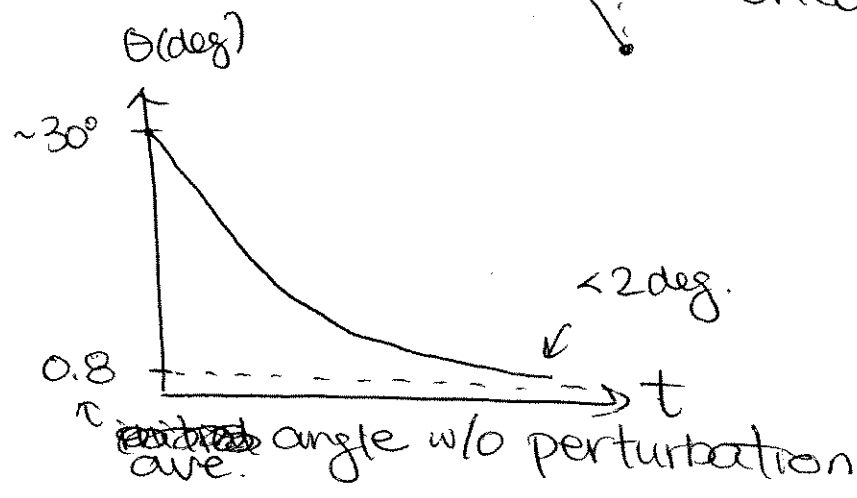 θ(deg)
~30°
<2 deg.
0.8
t
angle w/o perturbation
ave.